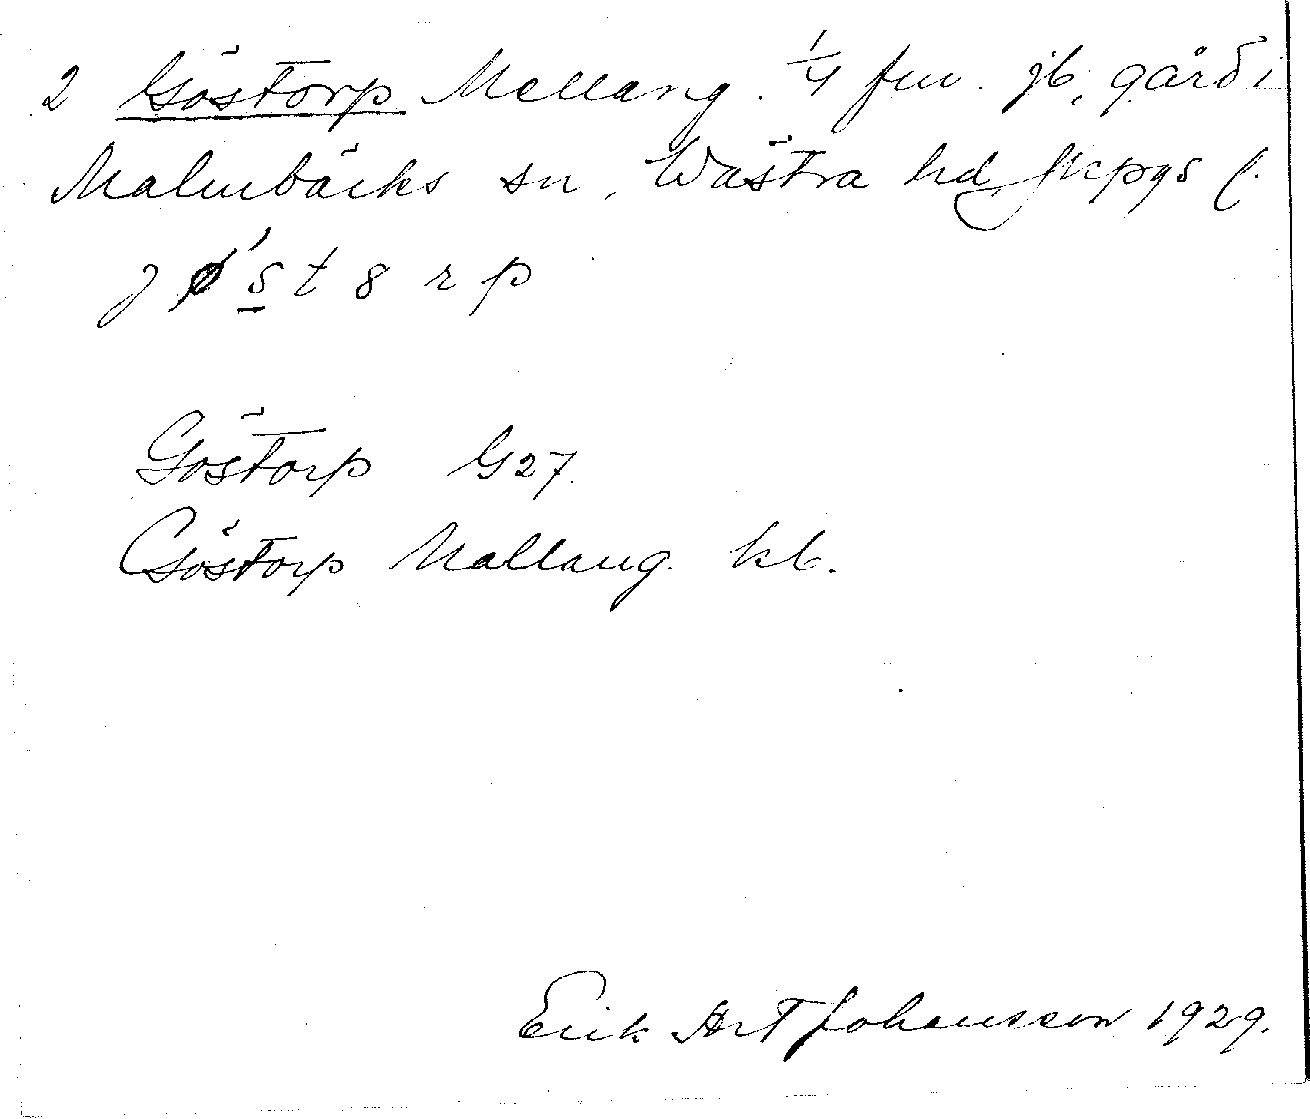 2 Göstorp Mellang. 1/4 frv. jb, gård i
Malmbäcks sn, Västra hd Jkpgs l.
j ǿ s t 8 r p
Göstorp G27.
Göstorp Mallang. kb.
Erik Art Johansson 1929.